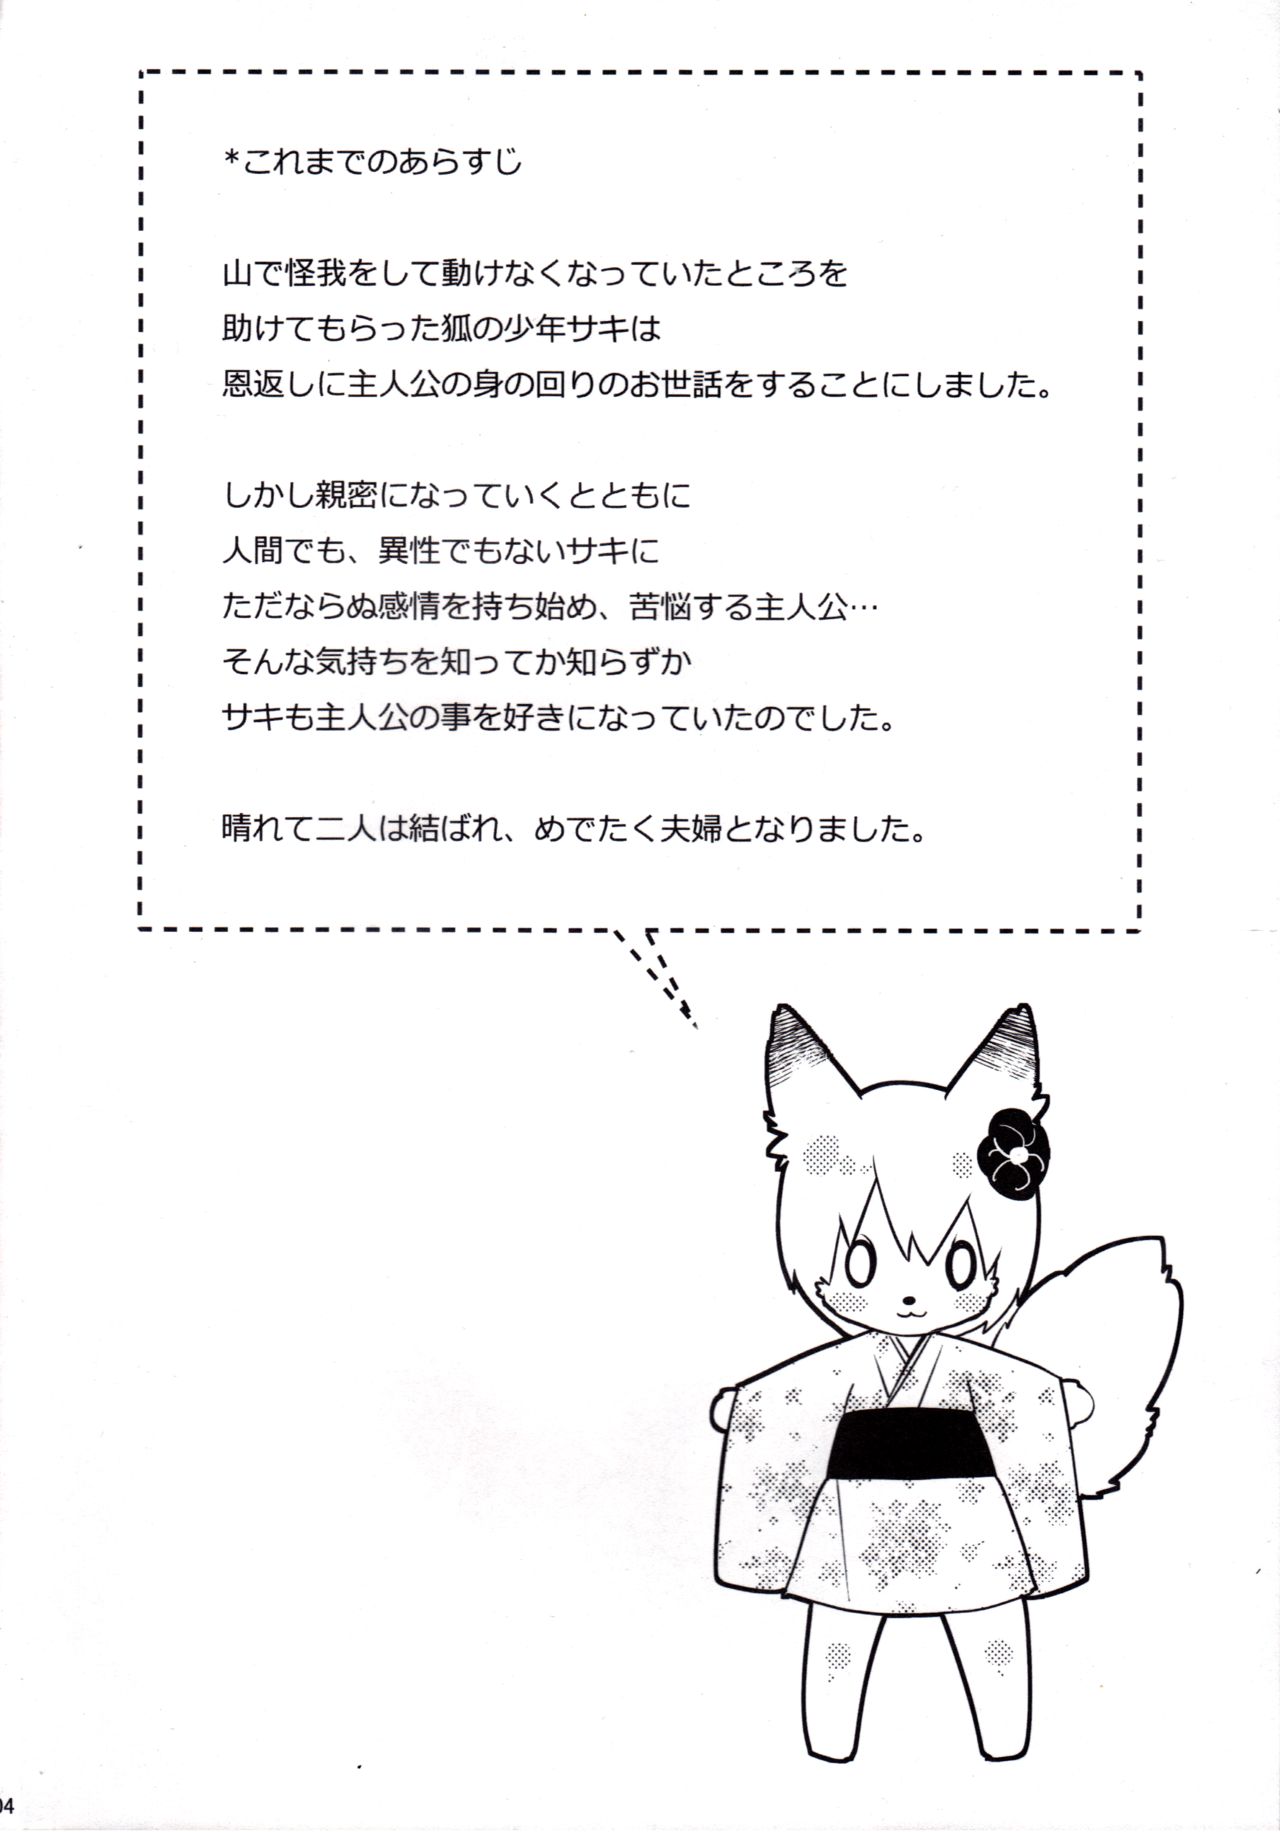 *これまでのあらすじ
山で怪我をして動けなくなっていたところを
助けてもらった狐の少年サキは
恩返しに主人公の身の回りのお世話をすることにしました。
しかし親密になっていくとともに
人間でも、異性でもないサキに
ただならぬ感情を持ち始め、苦悩する主人公…
そんな気持ちを知ってか知らずか
サキも主人公の事を好きになっていたのでした。
晴れて二人は結ばれ、めでたく夫婦となりました。
04